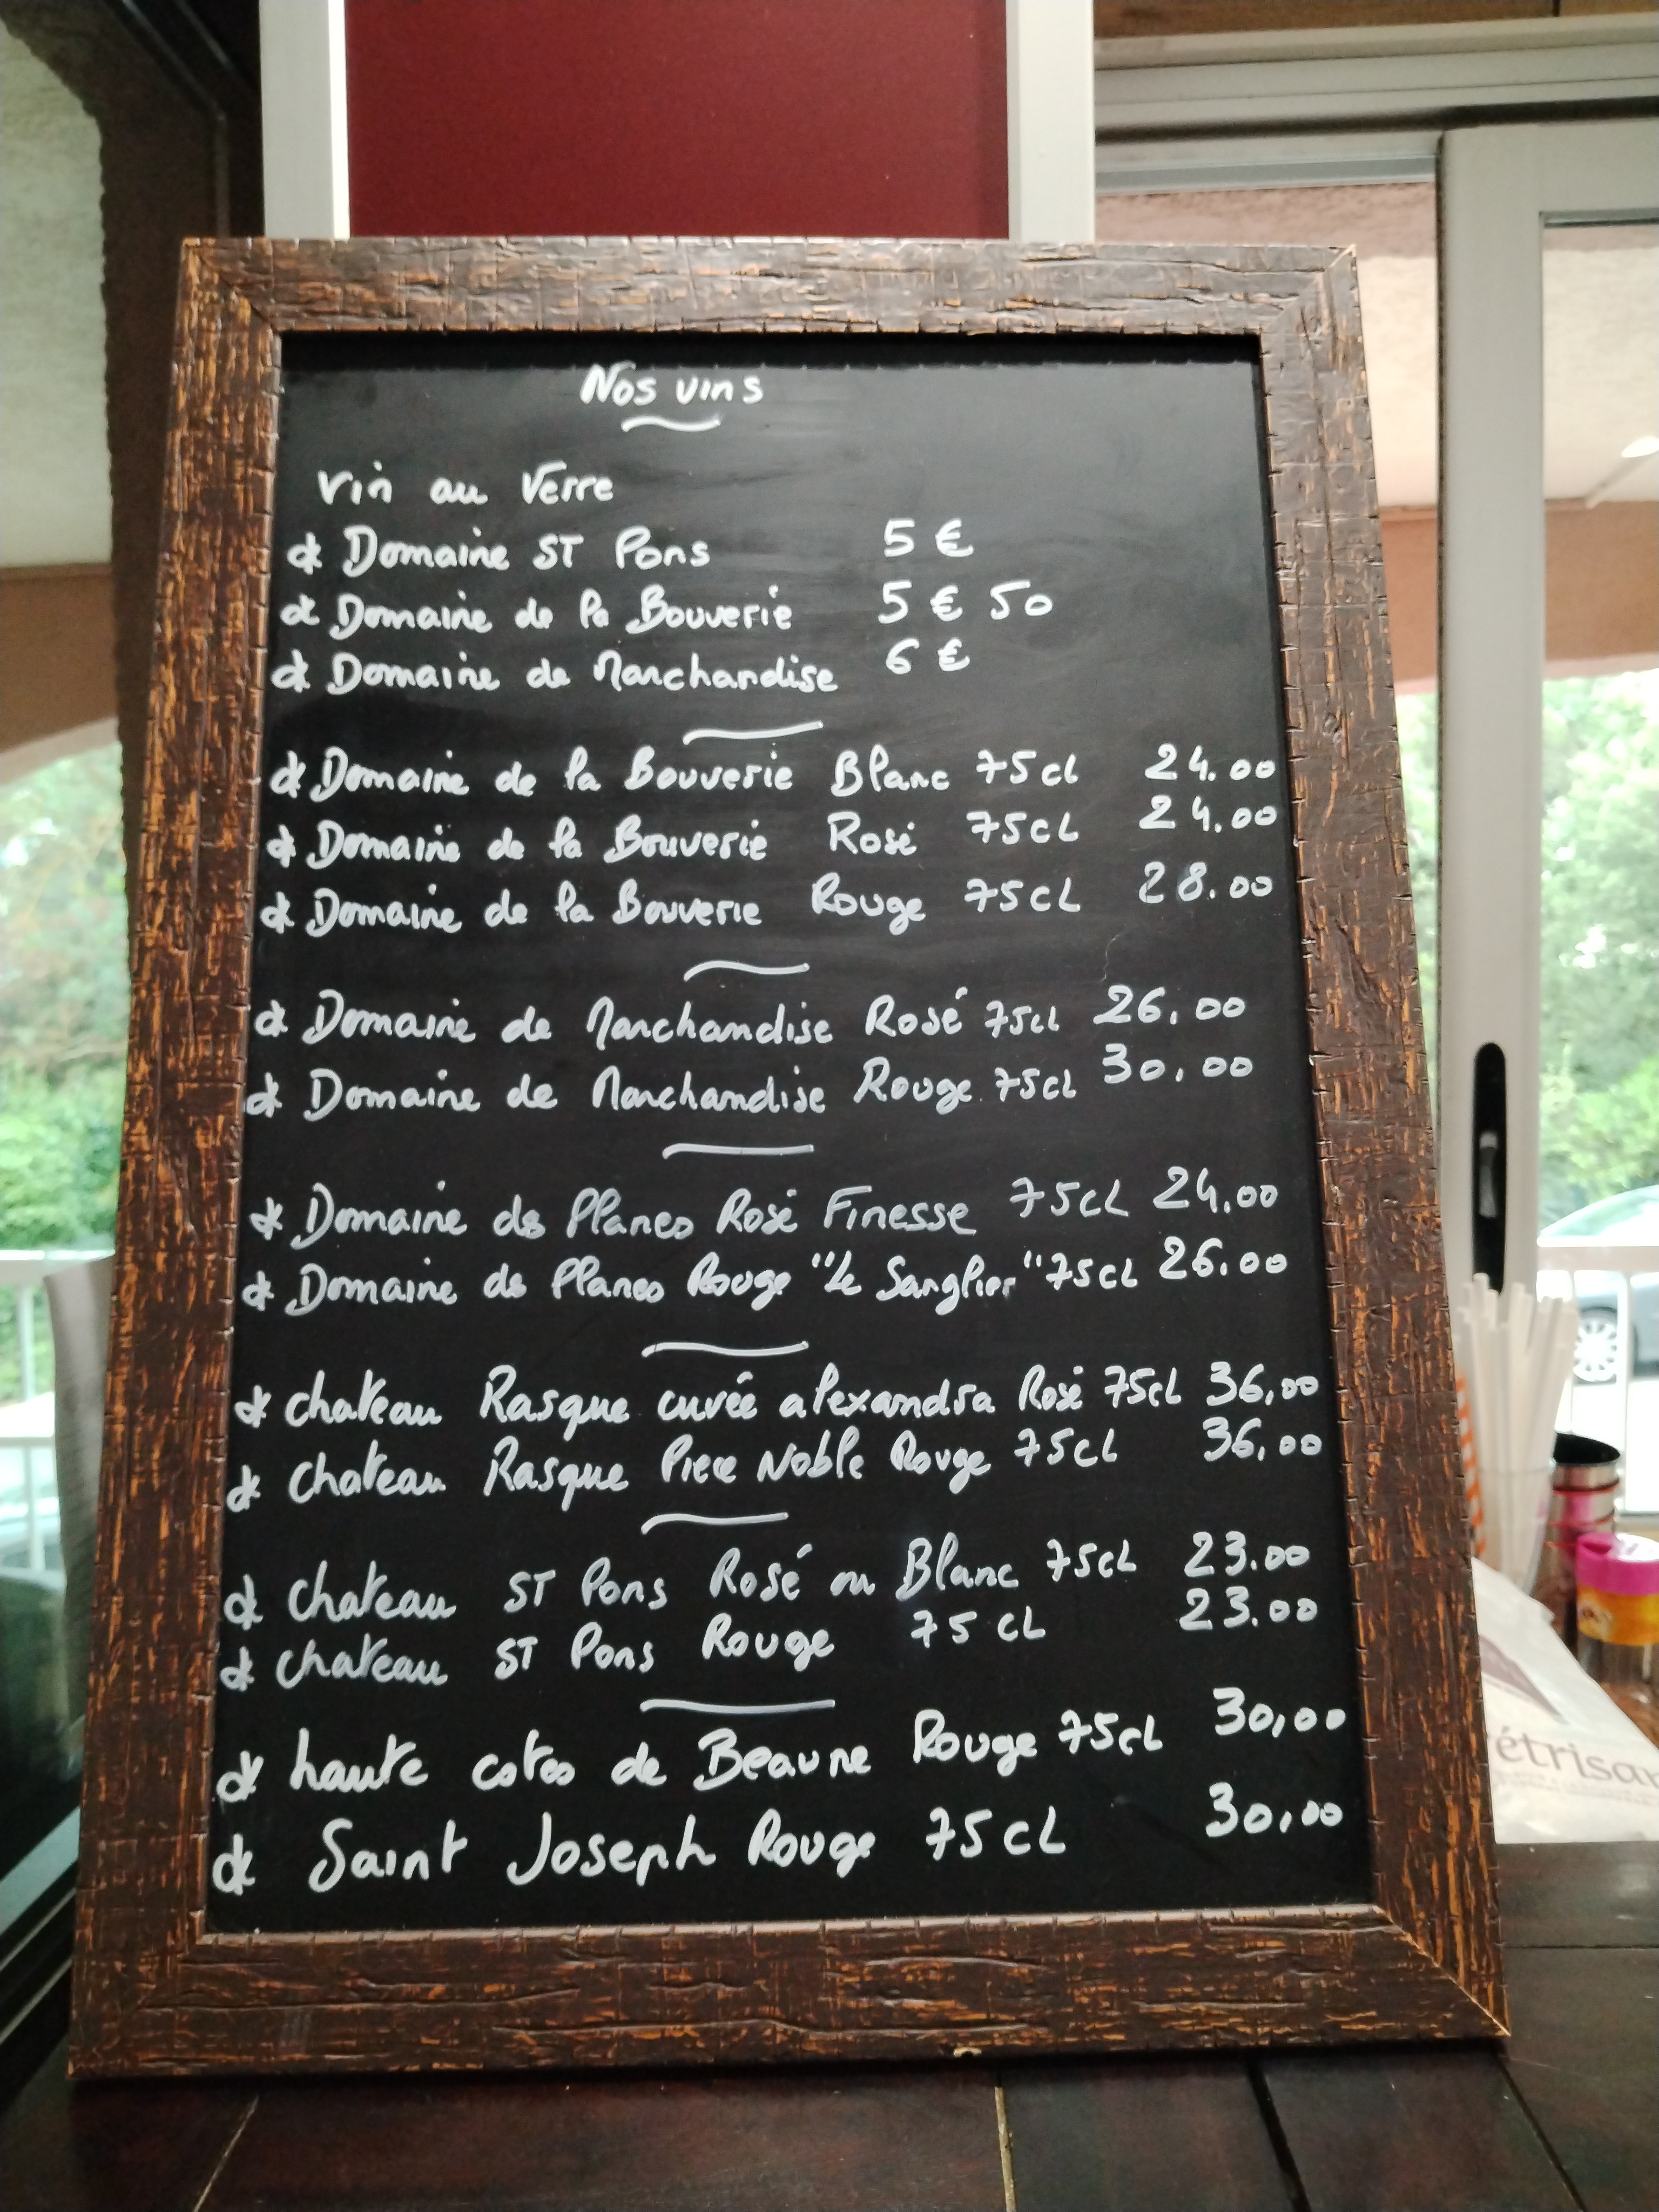 Nos vins
vin au Verre
* Domaine ST Pons 5 €
* Domaine de la Bouverie 5 € 50
* Domaine de Marchandise 6 €
* Domaine de la Bouverie Blanc 75cl 24.00
* Domaine de la Bouverie Rosé 75cL 24.00
* Domaine de la Bouverie Rouge 75cL 28.00
* Domaine de Marchandise Rosé 75cl 26,00
* Domaine de Marchandise Rouge 75cl 30,00
* Domaine des Planes Rosé Finesse 75cL 24,00
* Domaine des Planes Rouge "Le Sanglier" 75cL 26.00
* chateau Rasque cuvée alexandra Rosé 75cl 36,00
* chateau Rasque Piece Noble Rouge 75cl 36,00
* chateau ST Pons Rosé ou Blanc 75cL 23.00
* chateau ST Pons Rouge 75 cL 23.00
* haute cotes de Beaune Rouge 75cL 30,00
* Saint Joseph Rouge 75cL 30,00